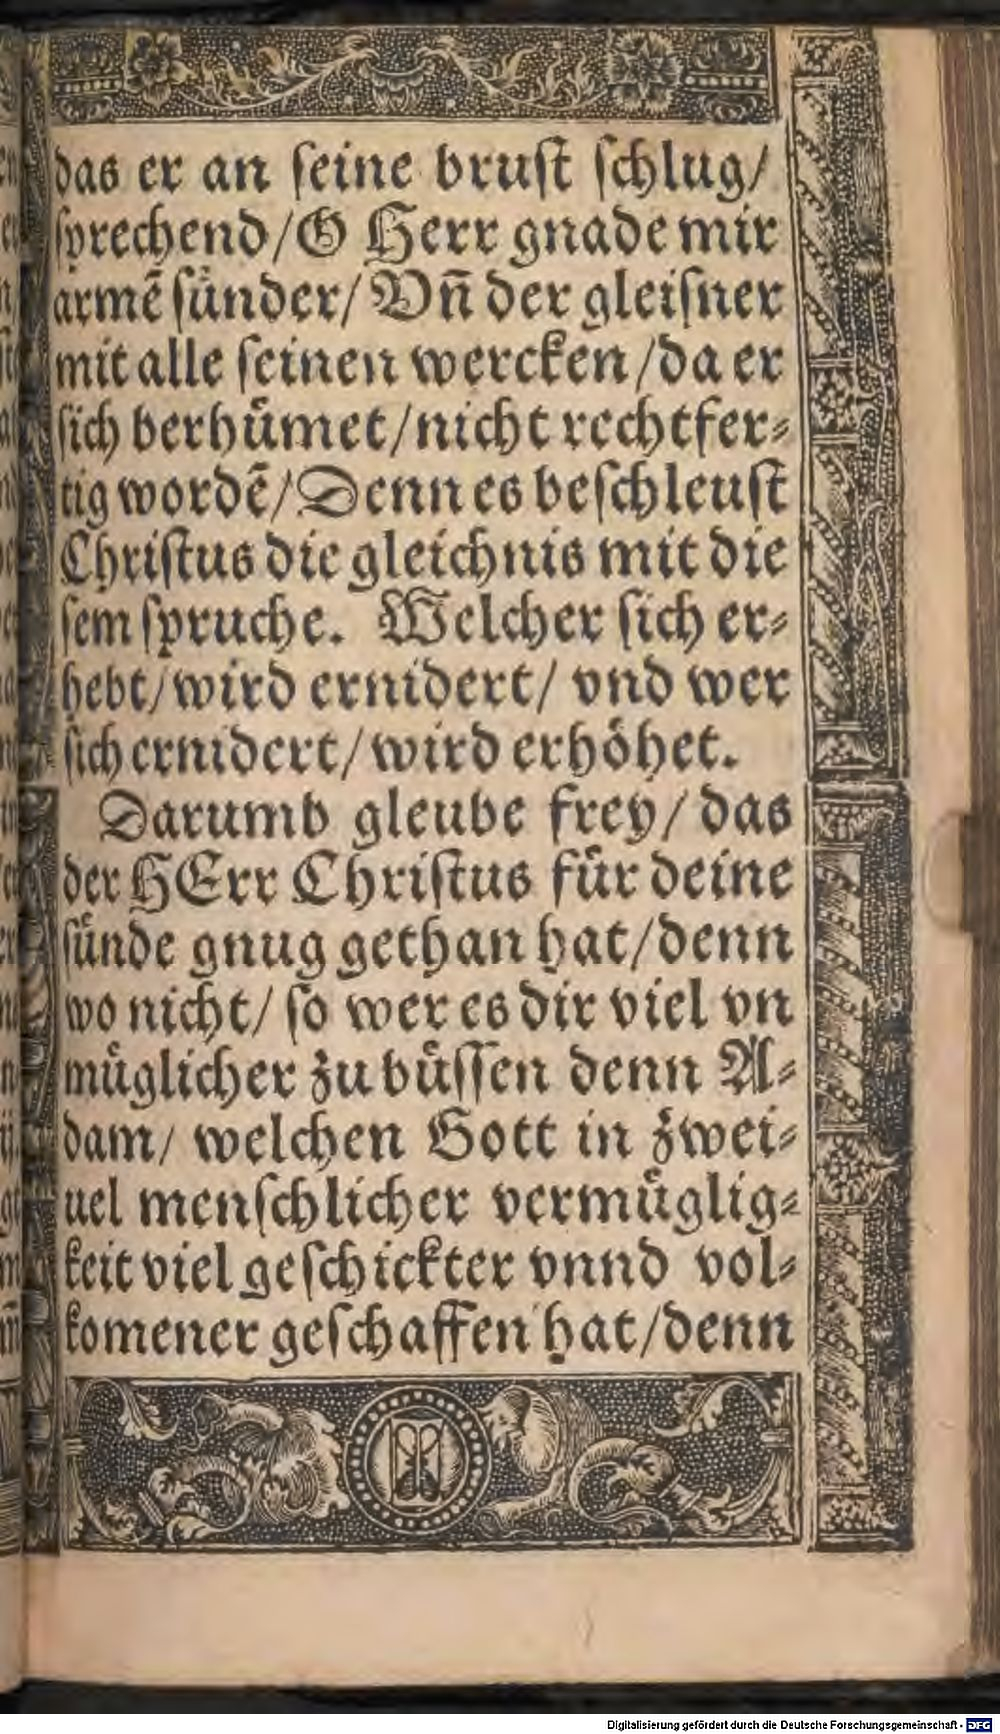 das er an ſeine bruſt ſchlug/
ſprechend/O Herr gnade mir
armē ſuͤnder/Vn̄ der gleiſner
mit alle ſeinen wercken/da er
ſich berhuͤmet/nicht rechtfer⸗
tig wordē/Denn es beſchleuſt
Chriſtus die gleichnis mit die
ſem ſpruche. Welcher ſich er⸗
hebt/wird ernidert/ vnd wer
ſich ernidert/wird erhoͤhet.
Darumb gleube frey/das
der HErr Chriſtus fuͤr deine
ſuͤnde gnug gethan hat/denn
wo nicht/ ſo wer es dir viel vn
muͤglicher zu buͤſſen denn A⸗
dam/ welchen Gott in zwei⸗
uel menſchlicher vermuͤglig⸗
keit viel geſchickter vnnd vol⸗
komener geſchaffen hat/denn
Digitalisierung gefördert durch die Deutsche Forschungsgemeinschaft - DFG